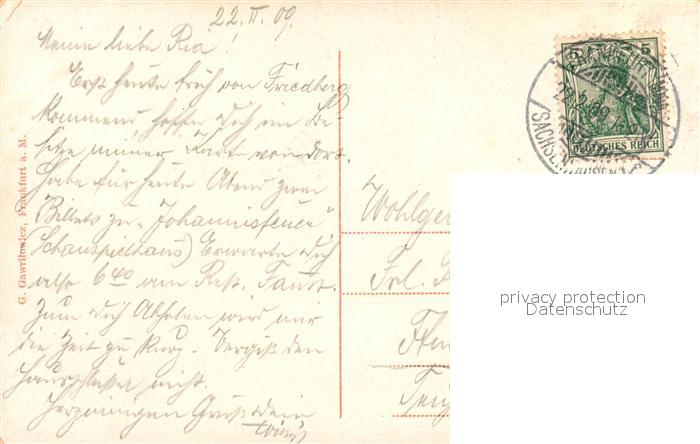 22. II. 09.
Meine liebe Ria!
Erst heute früh von Friedberg
kommend hoffe Dich im Be-
sitze meiner Karte von dort.
Habe für heute Abend zwei
Billets zu „Johannisfeuer"
(Schauspielhaus) Erwarte Dich
also 6 40 am Rest. Faust.
Zum Dich Abholen wird mir
die Zeit zu kurz. Vergiß den
Hausschlüssel nicht.
Herzinnigen Gruß Dein
G. Gawrilowicz, Frankfurt a. M.
5 5
DEUTSCHES REICH
Wohlge
Frl.
privacy protection
Datenschutz